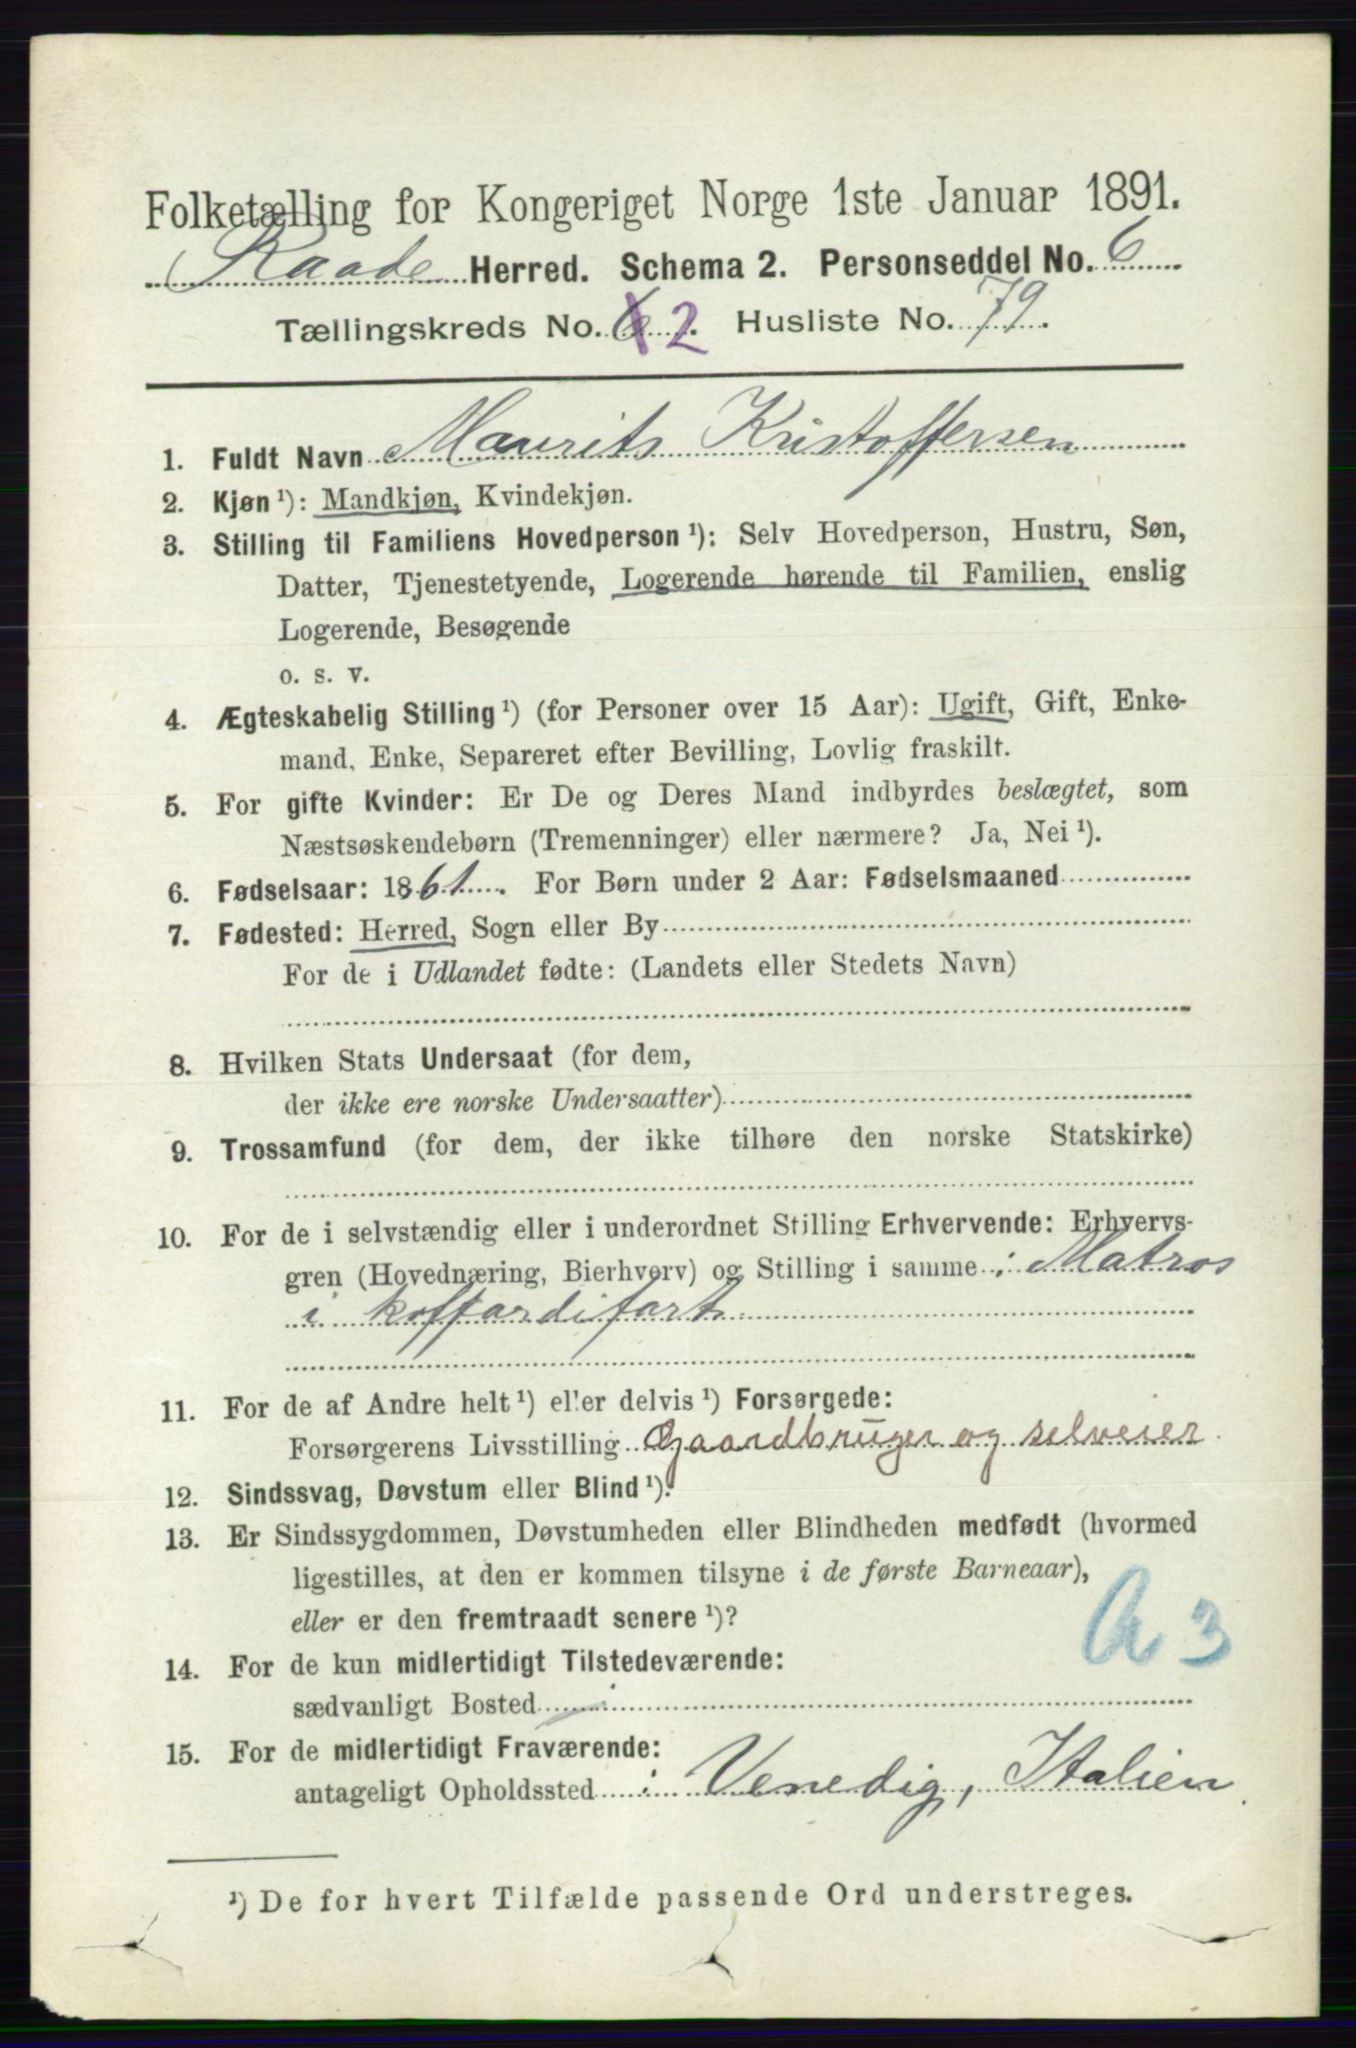 Folketælling for Kongeriget Norge 1ste Januar 1891.
Raade Herred. Schema 2. Personseddel No. 6
Tællingskreds No. 6 2. Husliste No. 79.
1. Fuldt Navn Maurits Kristoffersen
2. Kjøn ¹): Mandkjøn, Kvindekjøn.
3. Stilling til Familiens Hovedperson ¹): Selv Hovedperson, Hustru, Søn,
Datter, Tjenestetyende, Logerende hørende til Familien, enslig
Logerende, Besøgende
o. s. v.
4. Ægteskabelig Stilling ¹) (for Personer over 15 Aar): Ugift, Gift, Enke-
mand, Enke, Separeret efter Bevilling, Lovlig fraskilt.
5. For gifte Kvinder: Er De og Deres Mand indbyrdes beslægtet, som
Næstsøskendebørn (Tremenninger) eller nærmere? Ja, Nei ¹).
6. Fødselsaar: 1861. For Børn under 2 Aar: Fødselsmaaned
7. Fødested: Herred, Sogn eller By
For de i Udlandet fødte: (Landets eller Stedets Navn)
8. Hvilken Stats Undersaat (for dem,
der ikke ere norske Undersaatter)
9. Trossamfund (for dem, der ikke tilhøre den norske Statskirke)
10. For de i selvstændig eller i underordnet Stilling Erhvervende: Erhvervs-
gren (Hovednæring, Bierhverv) og Stilling i samme : Matros
i koffardifart
11. For de af Andre helt ¹) eller delvis ¹) Forsørgede:
Forsørgerens Livsstilling Gaardbruger og selveier.
12. Sindssvag, Døvstum eller Blind ¹).
13. Er Sindssygdommen, Døvstumheden eller Blindheden medfødt (hvormed
ligestilles, at den er kommen tilsyne i de første Barneaar),
eller er den fremtraadt senere ¹)?
A 3
14. For de kun midlertidigt Tilstedeværende:
sædvanligt Bosted
15. For de midlertidigt Fraværende:
antageligt Opholdssted : Venedig, Italien.
¹) De for hvert Tilfælde passende Ord understreges.